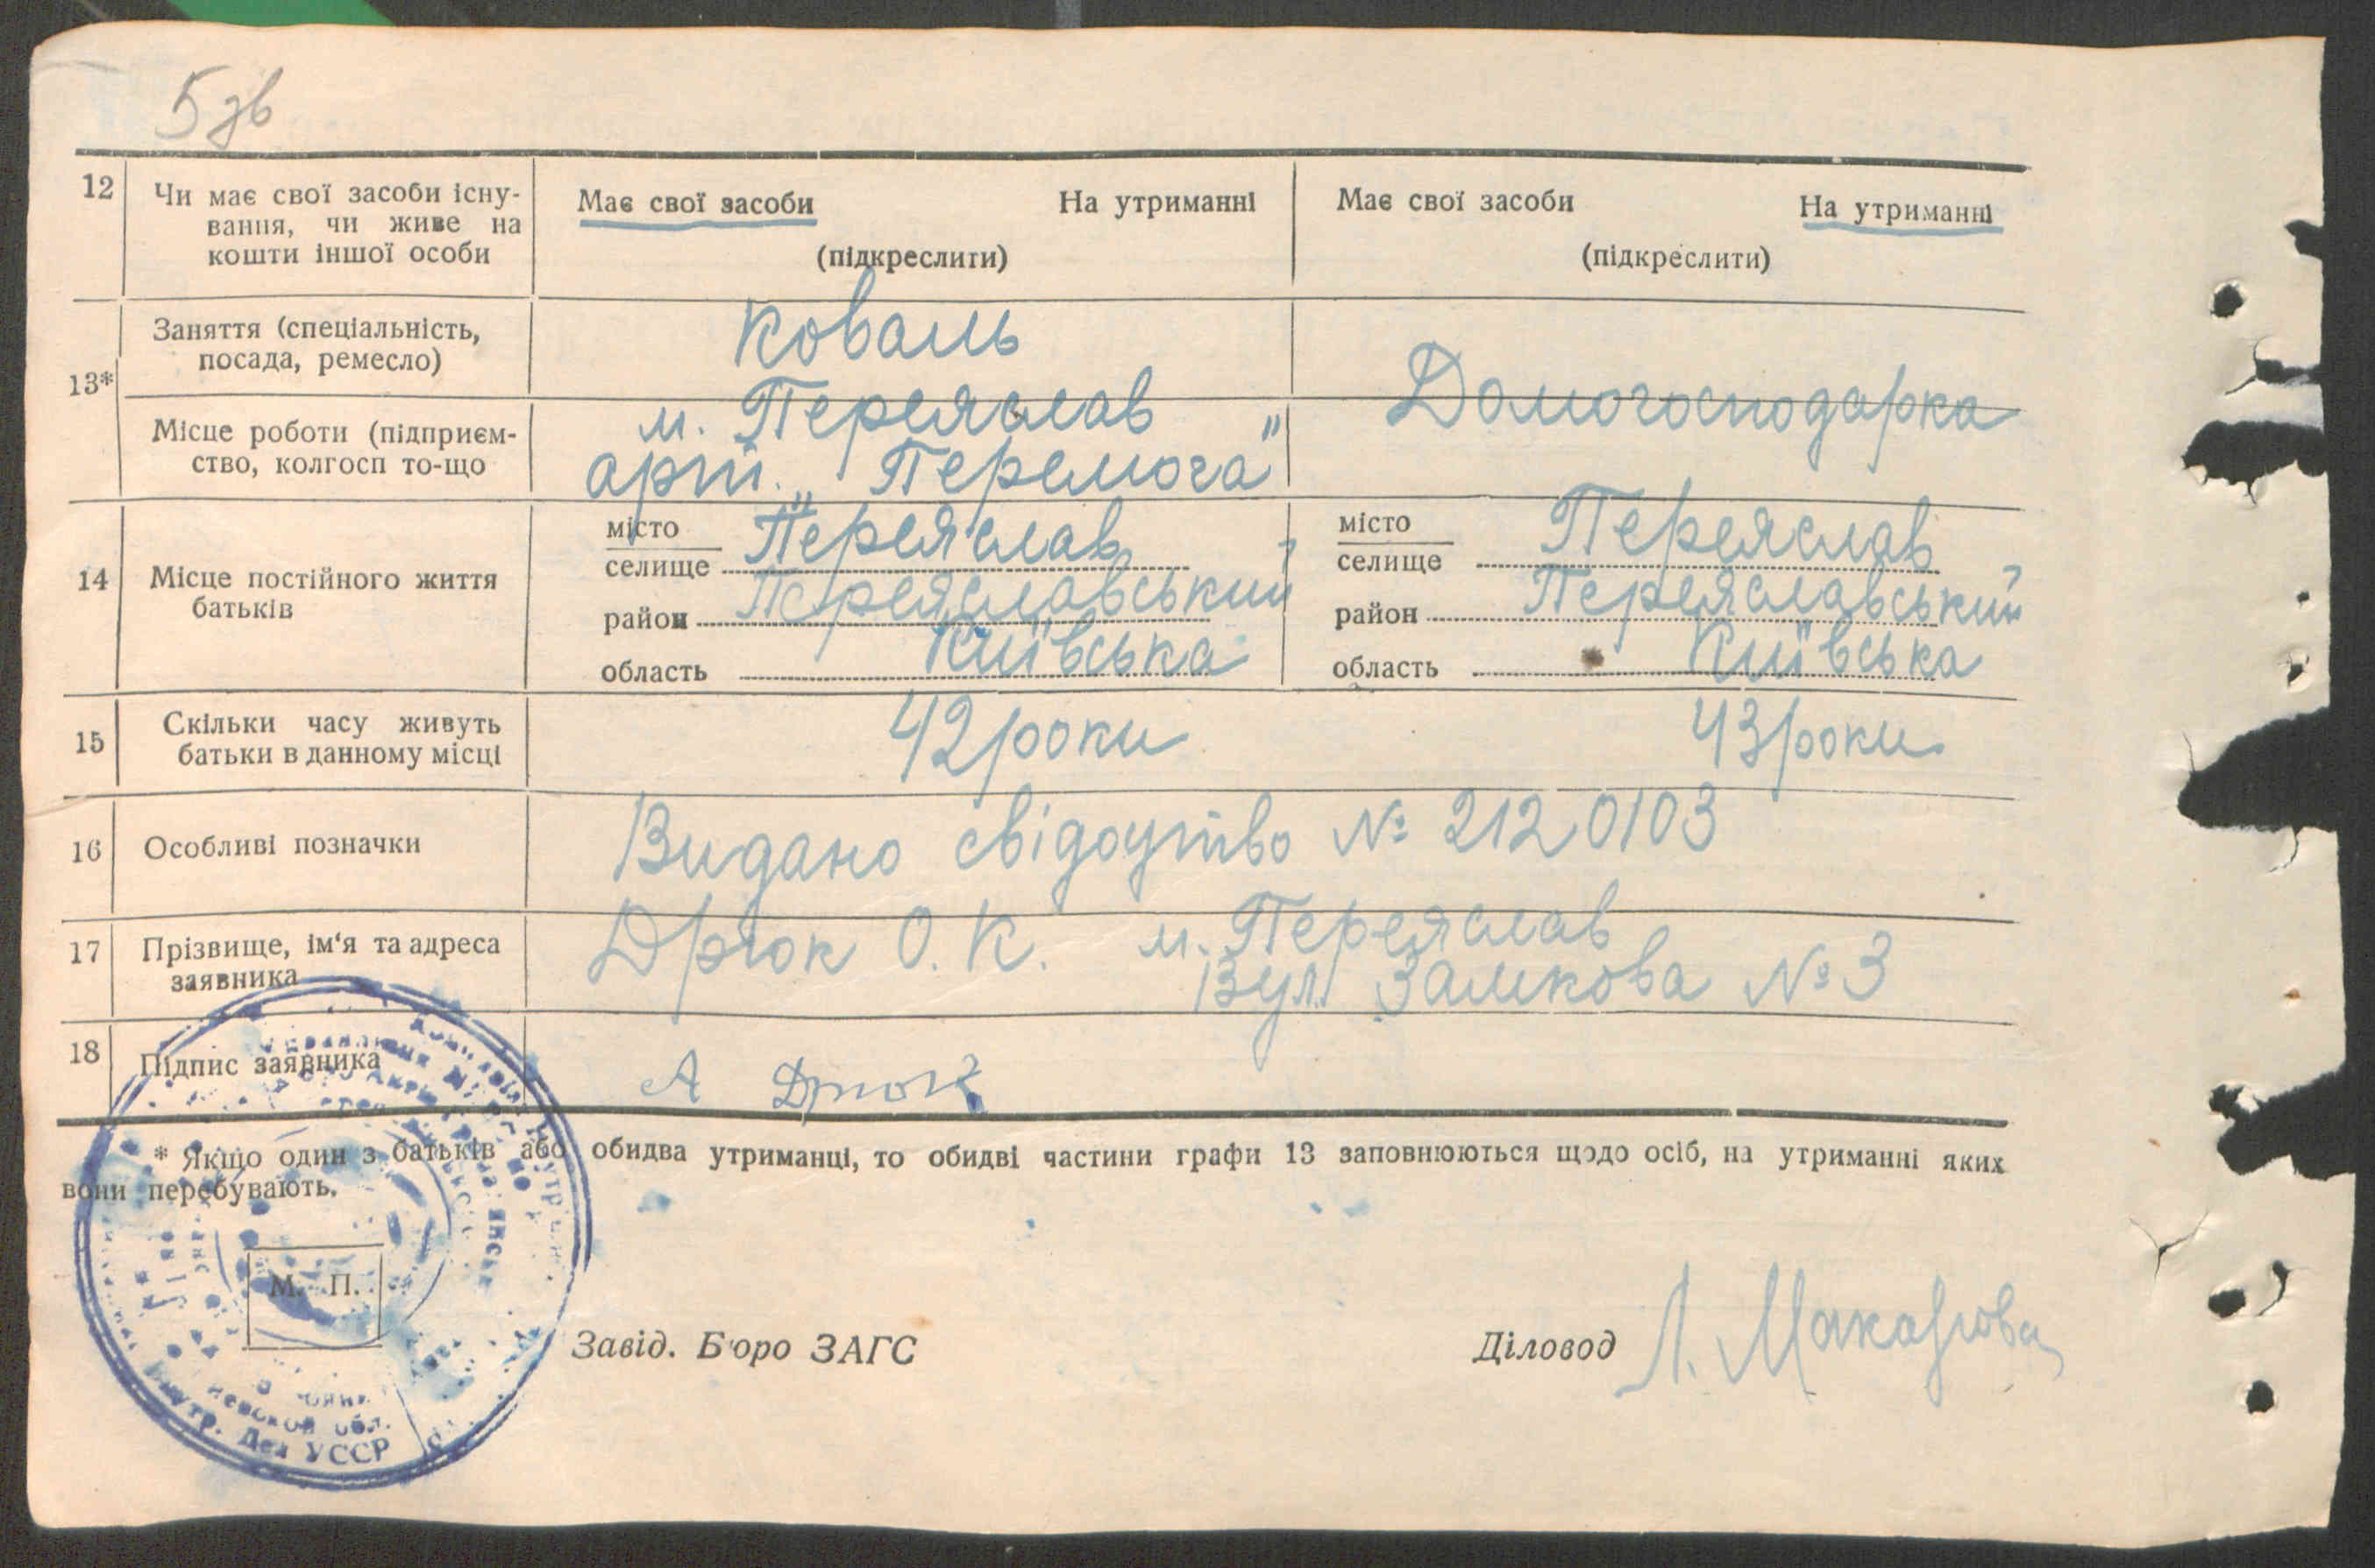 5 зв
12 Чи має свої засоби існу- Має свої засоби На утриманні Має свої засоби На утриманні
вання, чи живе на
кошти іншої особи (підкреслити) (підкреслити)
13* Заняття (спеціальність, Коваль Домогосподарка
посада, ремесло)
Місце роботи (підприєм- м. Переяслав
ство, колгосп то-що арт. „Перемога"
14 Місце постійного життя місто Переяслав місто Переяслав
батьків селище селище
район Переяславський район Переяславський
область Київська область Київська
15 Скільки часу живуть 42 роки 43 роки
батьки в данному місці
16 Особливі позначки Видано свідоцтво № 2120103
17 Прізвище, ім'я та адреса Дрюк О. К. м. Переяслав
заявника Вул. Замкова № 3
18 Підпис заявника А Дрюк
* Якщо один з батьків або обидва утриманці, то обидві частини графи 13 заповнюються щодо осіб, на утриманні яких
вони перебувають.
М. П.
Завід. Бюро ЗАГС Діловод Л. Макарова
Внутр. Дел УССР